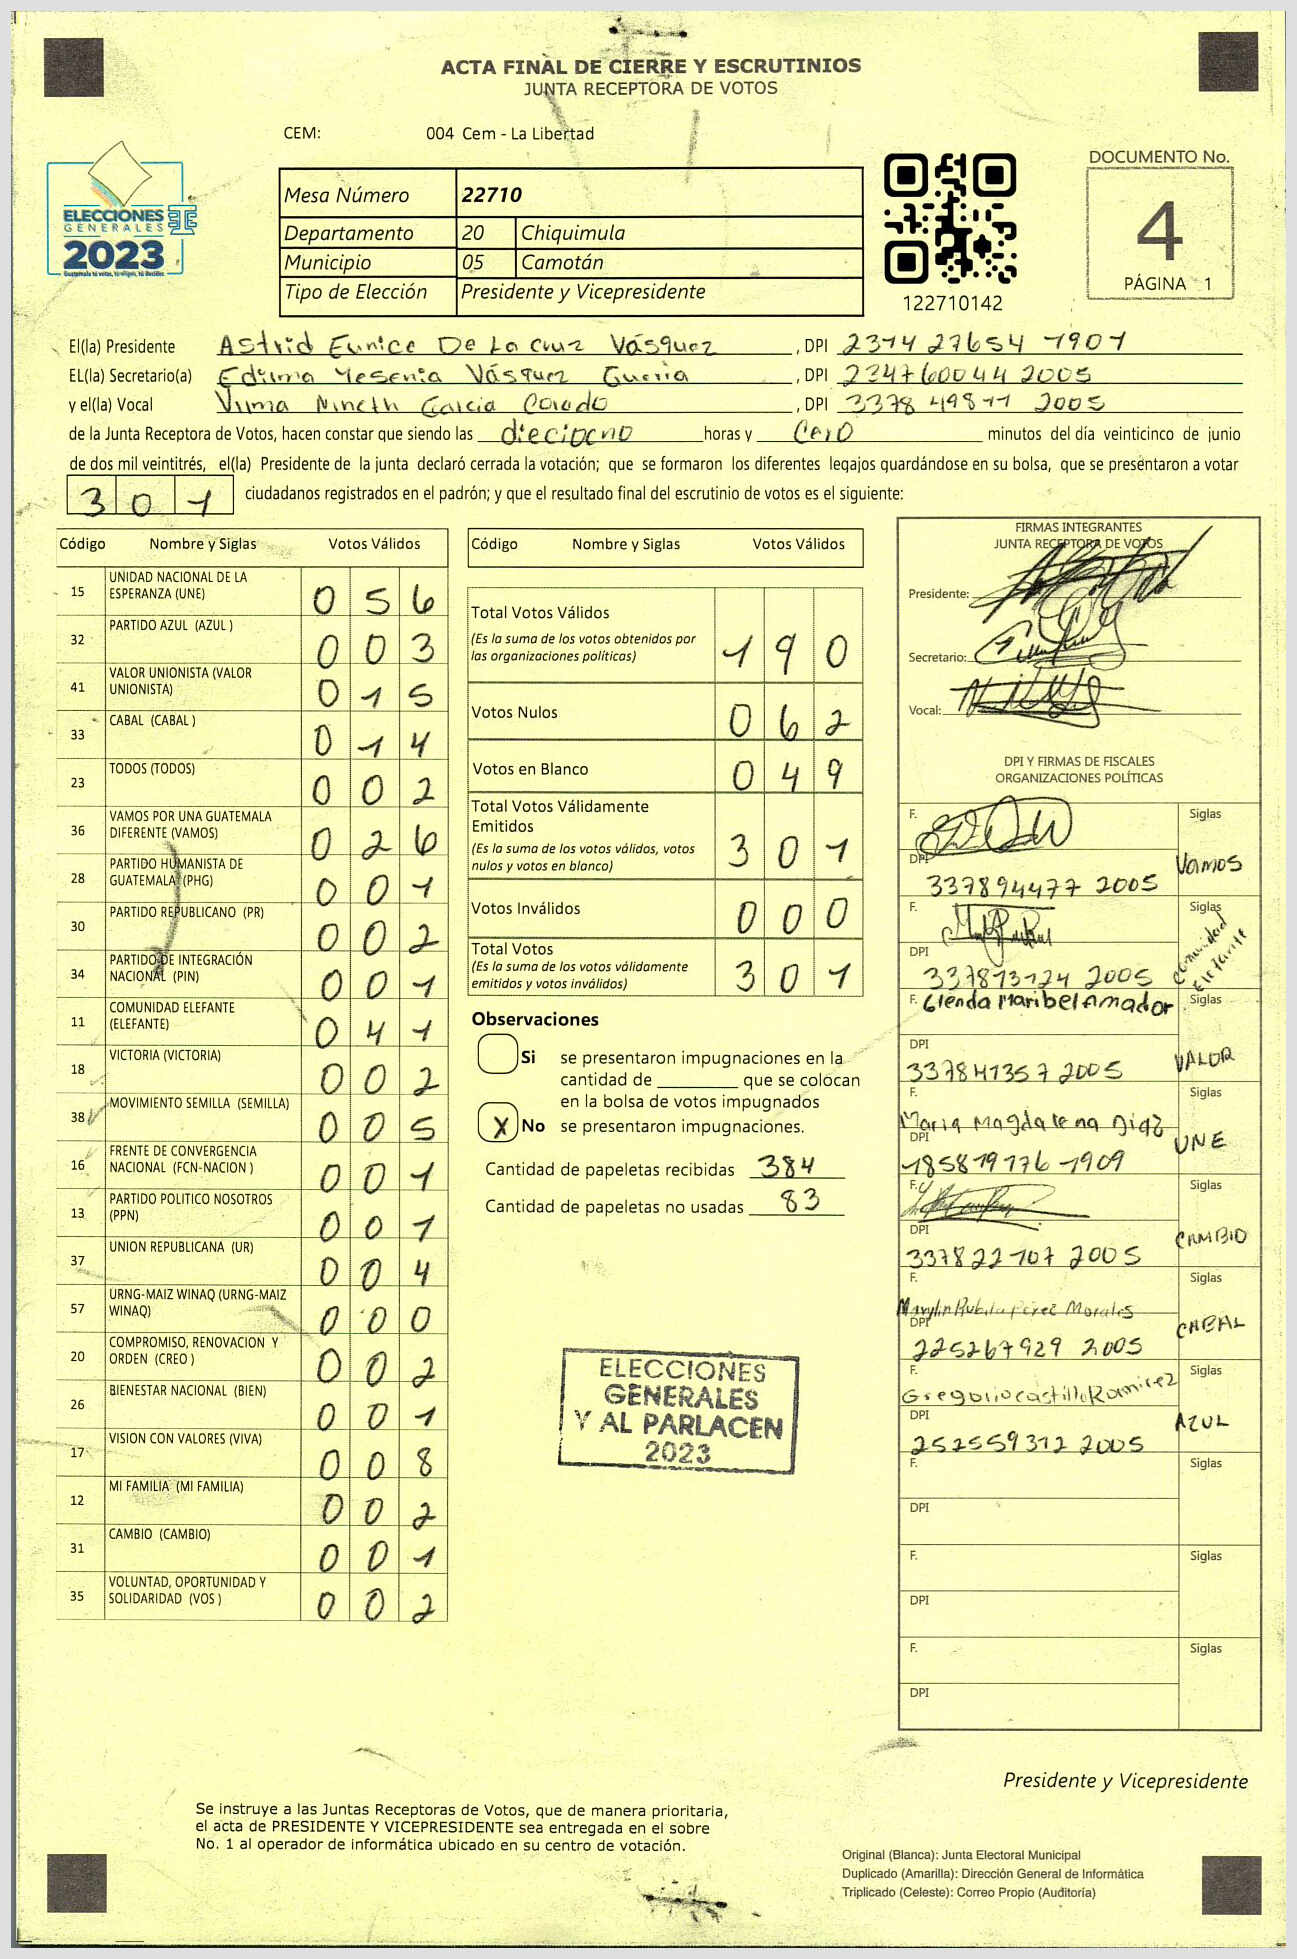 ACTA FINAL DE CIERRE Y ESCRUTINIOS
JUNTA RECEPTORA DE VOTOS
CEM: 004 Cem - La Libertad
ELECCIONES
GENERALES
2023
Mesa Número 22710
Departamento 20 Chiquimula
Municipio 05 Camotán
Tipo de Elección Presidente y Vicepresidente
122710142
DOCUMENTO No.
4
PÁGINA 1
El(la) Presidente Astrid Eunice De La Cruz Vásquez , DPI 2314 27654 1901
EL(la) Secretario(a) Edilma Yesenia Vásquez Guerra , DPI 234760044 2005
y el(la) Vocal Vilma Mineth Garcia , DPI 3378 49811 2005
de la Junta Receptora de Votos, hacen constar que siendo las dieciocho horas y cero minutos del día veinticinco de junio
de dos mil veintitrés, el(la) Presidente de la junta declaró cerrada la votación; que se formaron los diferentes legajos guardándose en su bolsa, que se presentaron a votar
301 ciudadanos registrados en el padrón; y que el resultado final del escrutinio de votos es el siguiente:
Código Nombre y Siglas Votos Válidos
15 UNIDAD NACIONAL DE LA ESPERANZA (UNE) 056
32 PARTIDO AZUL (AZUL ) 003
41 VALOR UNIONISTA (VALOR UNIONISTA) 015
33 CABAL (CABAL ) 014
23 TODOS (TODOS) 002
36 VAMOS POR UNA GUATEMALA DIFERENTE (VAMOS) 026
28 PARTIDO HUMANISTA DE GUATEMALA (PHG) 001
30 PARTIDO REPUBLICANO (PR) 002
34 PARTIDO DE INTEGRACIÓN NACIONAL (PIN) 001
11 COMUNIDAD ELEFANTE (ELEFANTE) 041
18 VICTORIA (VICTORIA) 002
38 MOVIMIENTO SEMILLA (SEMILLA) 005
16 FRENTE DE CONVERGENCIA NACIONAL (FCN-NACION ) 001
13 PARTIDO POLITICO NOSOTROS (PPN) 001
37 UNION REPUBLICANA (UR) 004
57 URNG-MAIZ WINAQ (URNG-MAIZ WINAQ) 000
20 COMPROMISO, RENOVACION Y ORDEN (CREO ) 002
26 BIENESTAR NACIONAL (BIEN) 001
17 VISION CON VALORES (VIVA) 008
12 MI FAMILIA (MI FAMILIA) 002
31 CAMBIO (CAMBIO) 001
35 VOLUNTAD, OPORTUNIDAD Y SOLIDARIDAD (VOS ) 002
Código Nombre y Siglas Votos Válidos
Total Votos Válidos
(Es la suma de los votos obtenidos por
las organizaciones políticas) 190
Votos Nulos 062
Votos en Blanco 049
Total Votos Válidamente
Emitidos
(Es la suma de los votos válidos, votos
nulos y votos en blanco) 301
Votos Inválidos 000
Total Votos
(Es la suma de los votos válidamente
emitidos y votos inválidos) 301
Observaciones
Si se presentaron impugnaciones en la
cantidad de ________ que se colocan
en la bolsa de votos impugnados
X No se presentaron impugnaciones.
Cantidad de papeletas recibidas 384
Cantidad de papeletas no usadas 83
ELECCIONES
GENERALES
Y AL PARLACEN
2023
FIRMAS INTEGRANTES
JUNTA RECEPTORA DE VOTOS
Presidente:
Secretario:
Vocal:
DPI Y FIRMAS DE FISCALES
ORGANIZACIONES POLÍTICAS
F. Siglas
DPI Vamos
337894477 2005
F. Siglas
DPI Comunidad Elefante
337873124 2005
F. Glenda Maribel Amador Siglas
DPI VALOR
337841357 2005
F. Siglas
Maria Magdalena Diaz
DPI UNE
185819176 1909
F. Siglas
DPI CAMBIO
337822107 2005
F. Siglas
Marylin Rubila Pérez Morales
DPI CABAL
225267929 2005
F. Siglas
Gregorio Castillo Ramirez
DPI AZUL
252559312 2005
F. Siglas
DPI
F. Siglas
DPI
F. Siglas
DPI
Presidente y Vicepresidente
Se instruye a las Juntas Receptoras de Votos, que de manera prioritaria,
el acta de PRESIDENTE Y VICEPRESIDENTE sea entregada en el sobre
No. 1 al operador de informática ubicado en su centro de votación.
Original (Blanca): Junta Electoral Municipal
Duplicado (Amarilla): Dirección General de Informática
Triplicado (Celeste): Correo Propio (Auditoría)